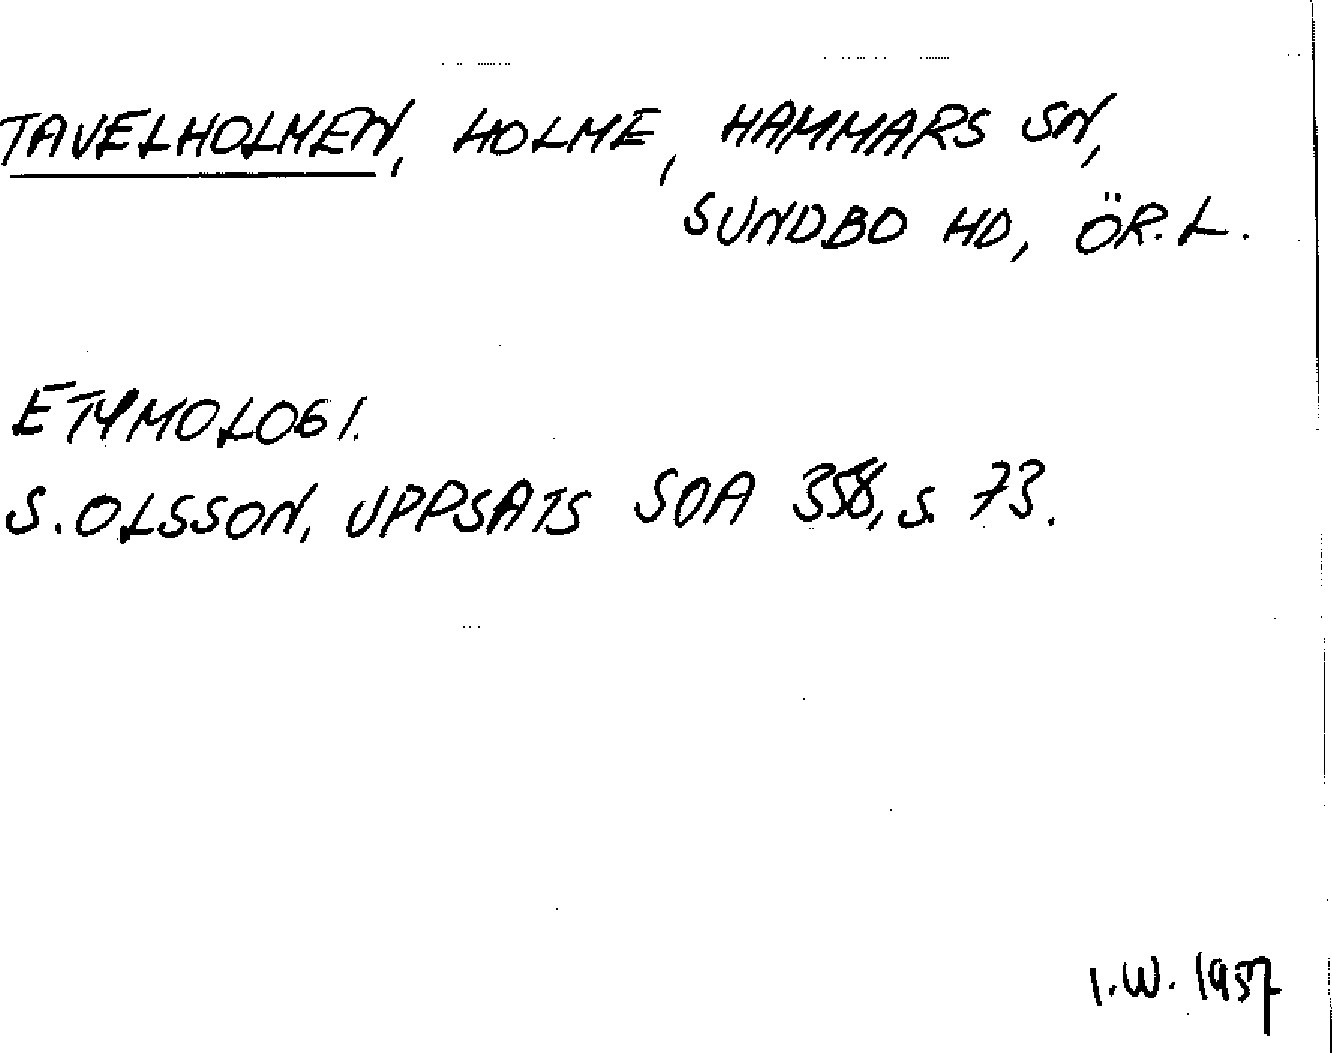 TAVELHOLMEN, HOLME, HAMMARS SN,
SUNDBO HD, ÖR. L.
ETYMOLOGI.
S. OLSSON, UPPSATS SOA 358, S. 73.
I.W. 1957